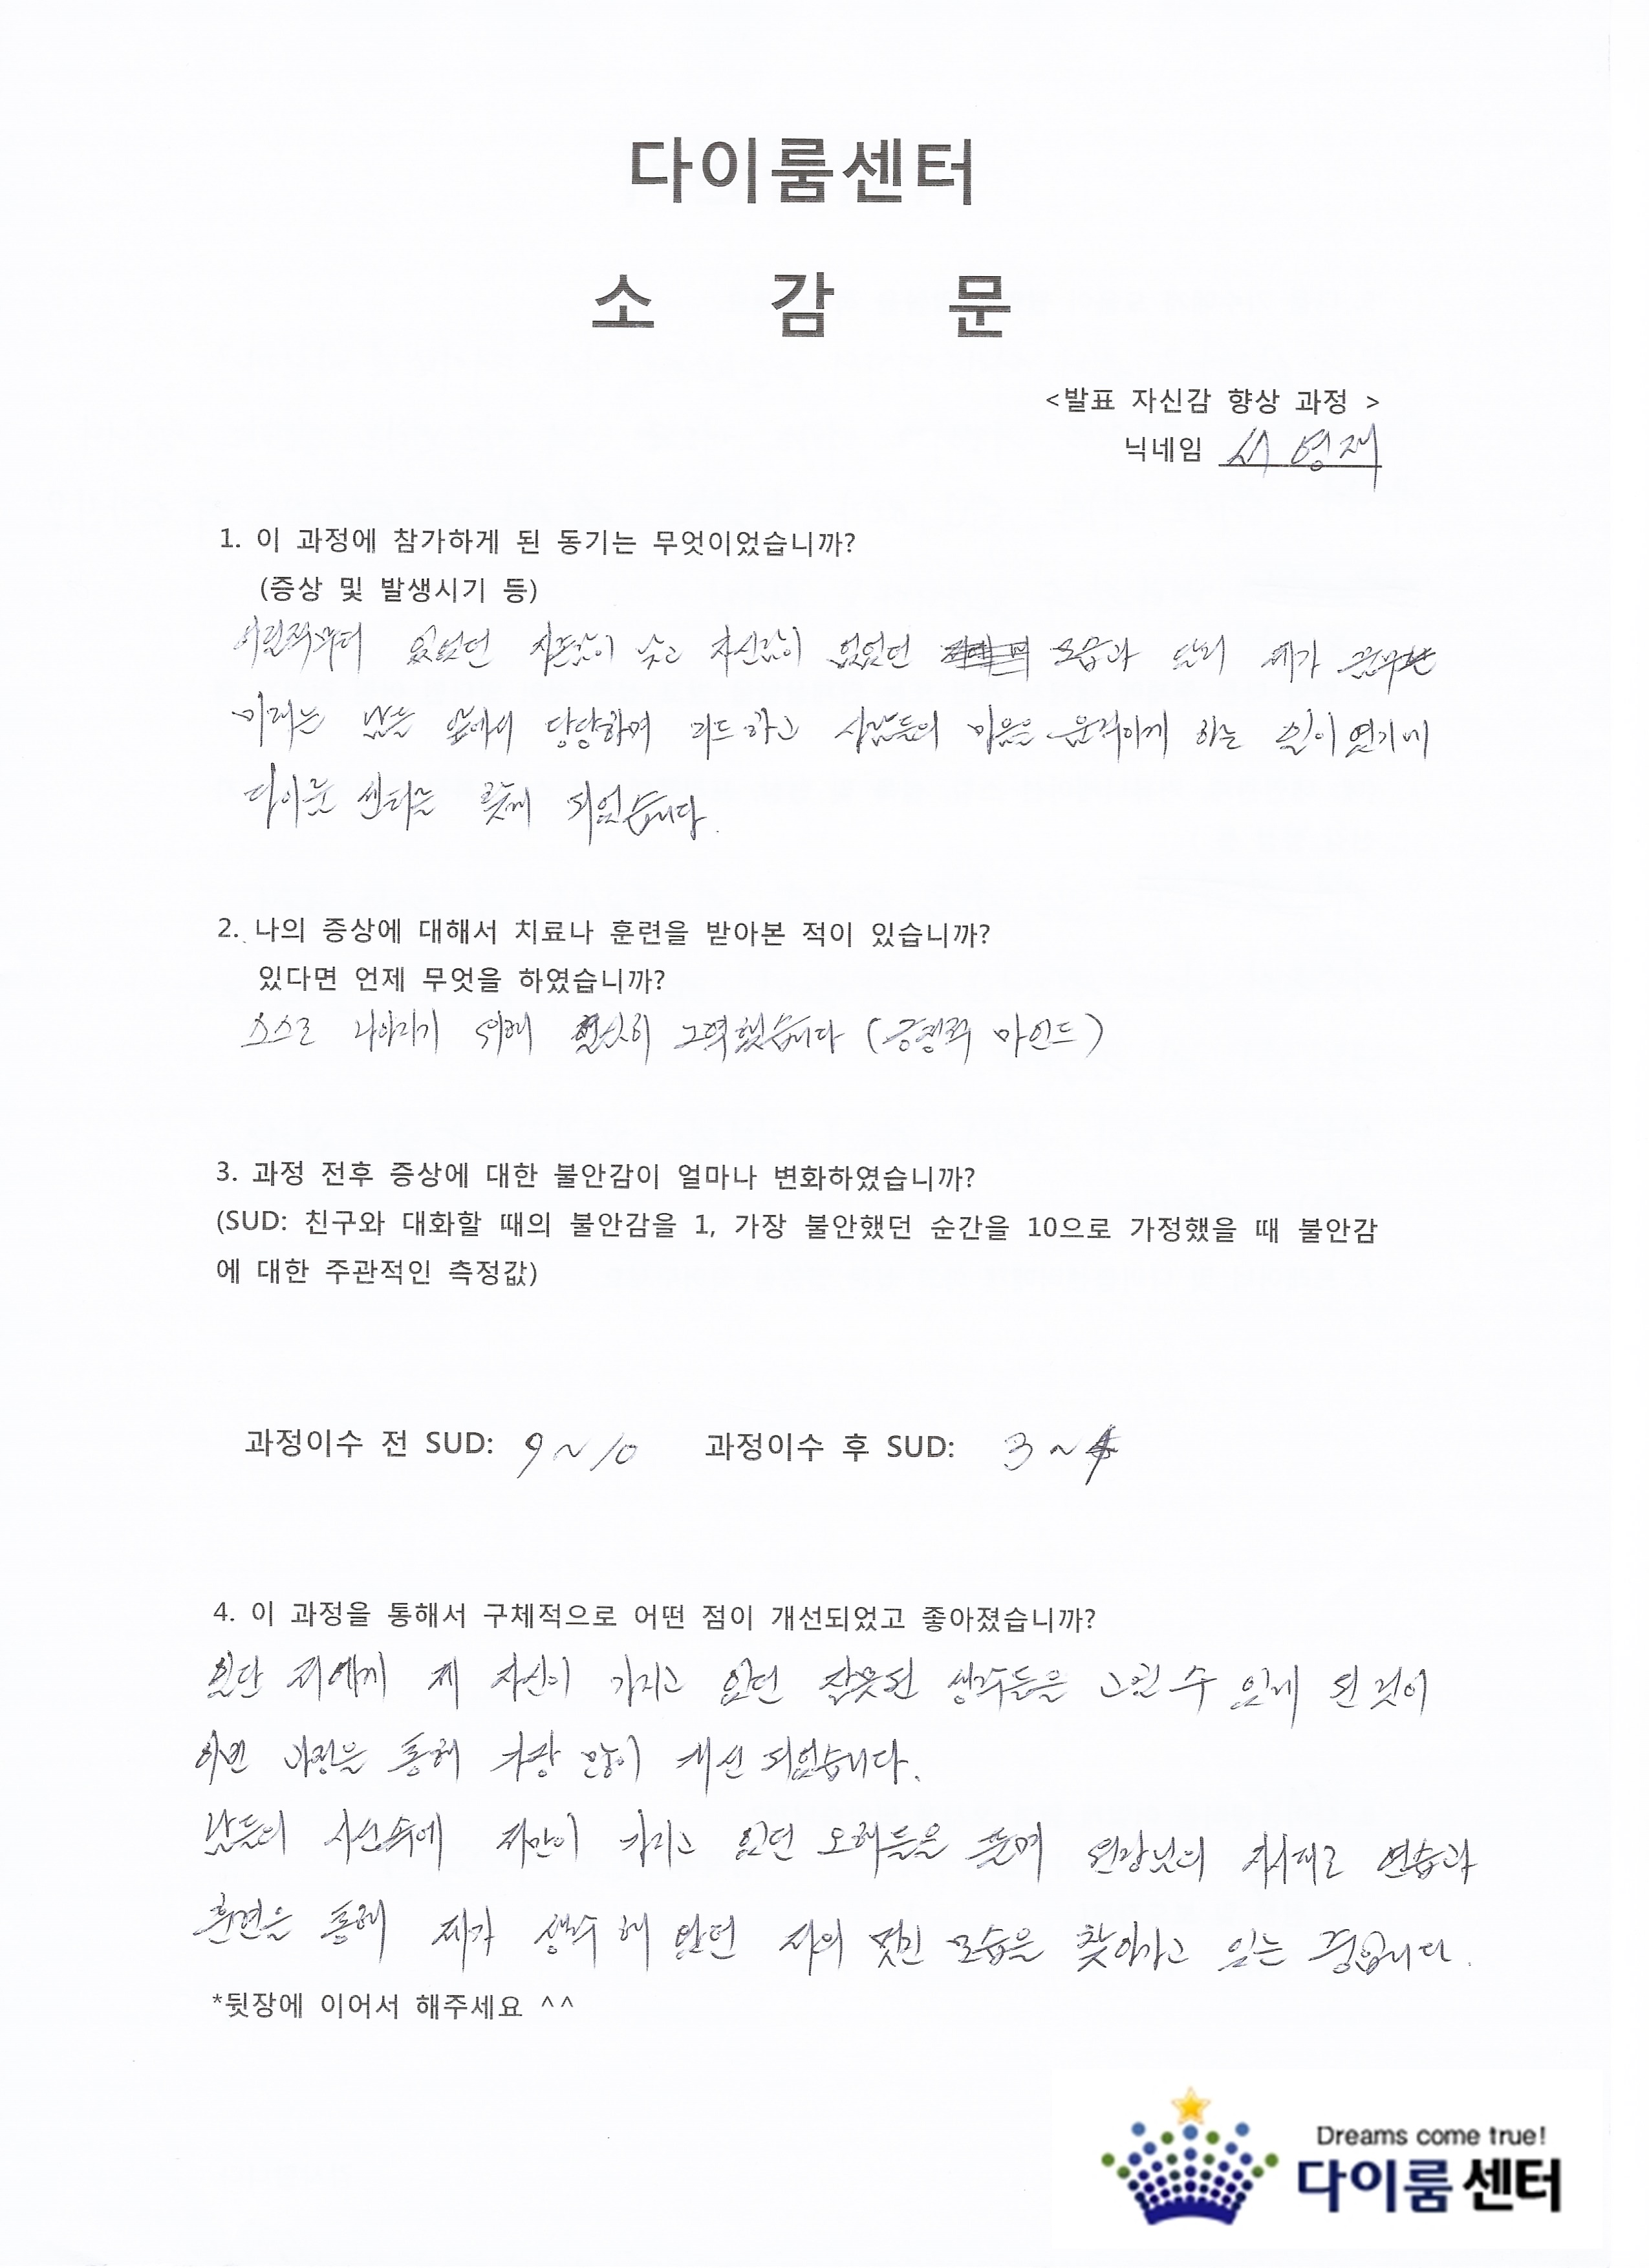 다이룸센터
소 감 문
<발표 자신감 향상 과정 >
닉네임 서영재
1. 이 과정에 참가하게 된 동기는 무엇이었습니까?
(증상 및 발생시기 등)
어린적부터 있었던 자존감이 낮고 자신감이 없었던 모습과 달리 제가 꿈꾸던
미래는 남들 앞에서 당당하며 리드하고 사람들의 마음을 움직이게 하는 일이였기에
다이룸 센터를 찾게 되었습니다.
2. 나의 증상에 대해서 치료나 훈련을 받아본 적이 있습니까?
있다면 언제 무엇을 하였습니까?
스스로 나아지기 위해 열심히 노력했습니다 (긍정적 마인드)
3. 과정 전후 증상에 대한 불안감이 얼마나 변화하였습니까?
(SUD: 친구와 대화할 때의 불안감을 1, 가장 불안했던 순간을 10으로 가정했을 때 불안감
에 대한 주관적인 측정값)
과정이수 전 SUD: 9~10 과정이수 후 SUD: 3~4
4. 이 과정을 통해서 구체적으로 어떤 점이 개선되었고 좋아졌습니까?
일단 저에게 제 자신이 가지고 있던 잘못된 생각들을 고칠 수 있게 된 것이
이번 과정을 통해 가장 많이 개선 되었습니다.
남들의 시선속에 저만이 가지고 있던 오해들을 풀며 원장님의 지시대로 연습과
훈련을 통해 제가 생각 해 왔던 저의 멋진 모습을 찾아가고 있는 중입니다.
*뒷장에 이어서 해주세요 ^^
Dreams come true!
다이룸센터